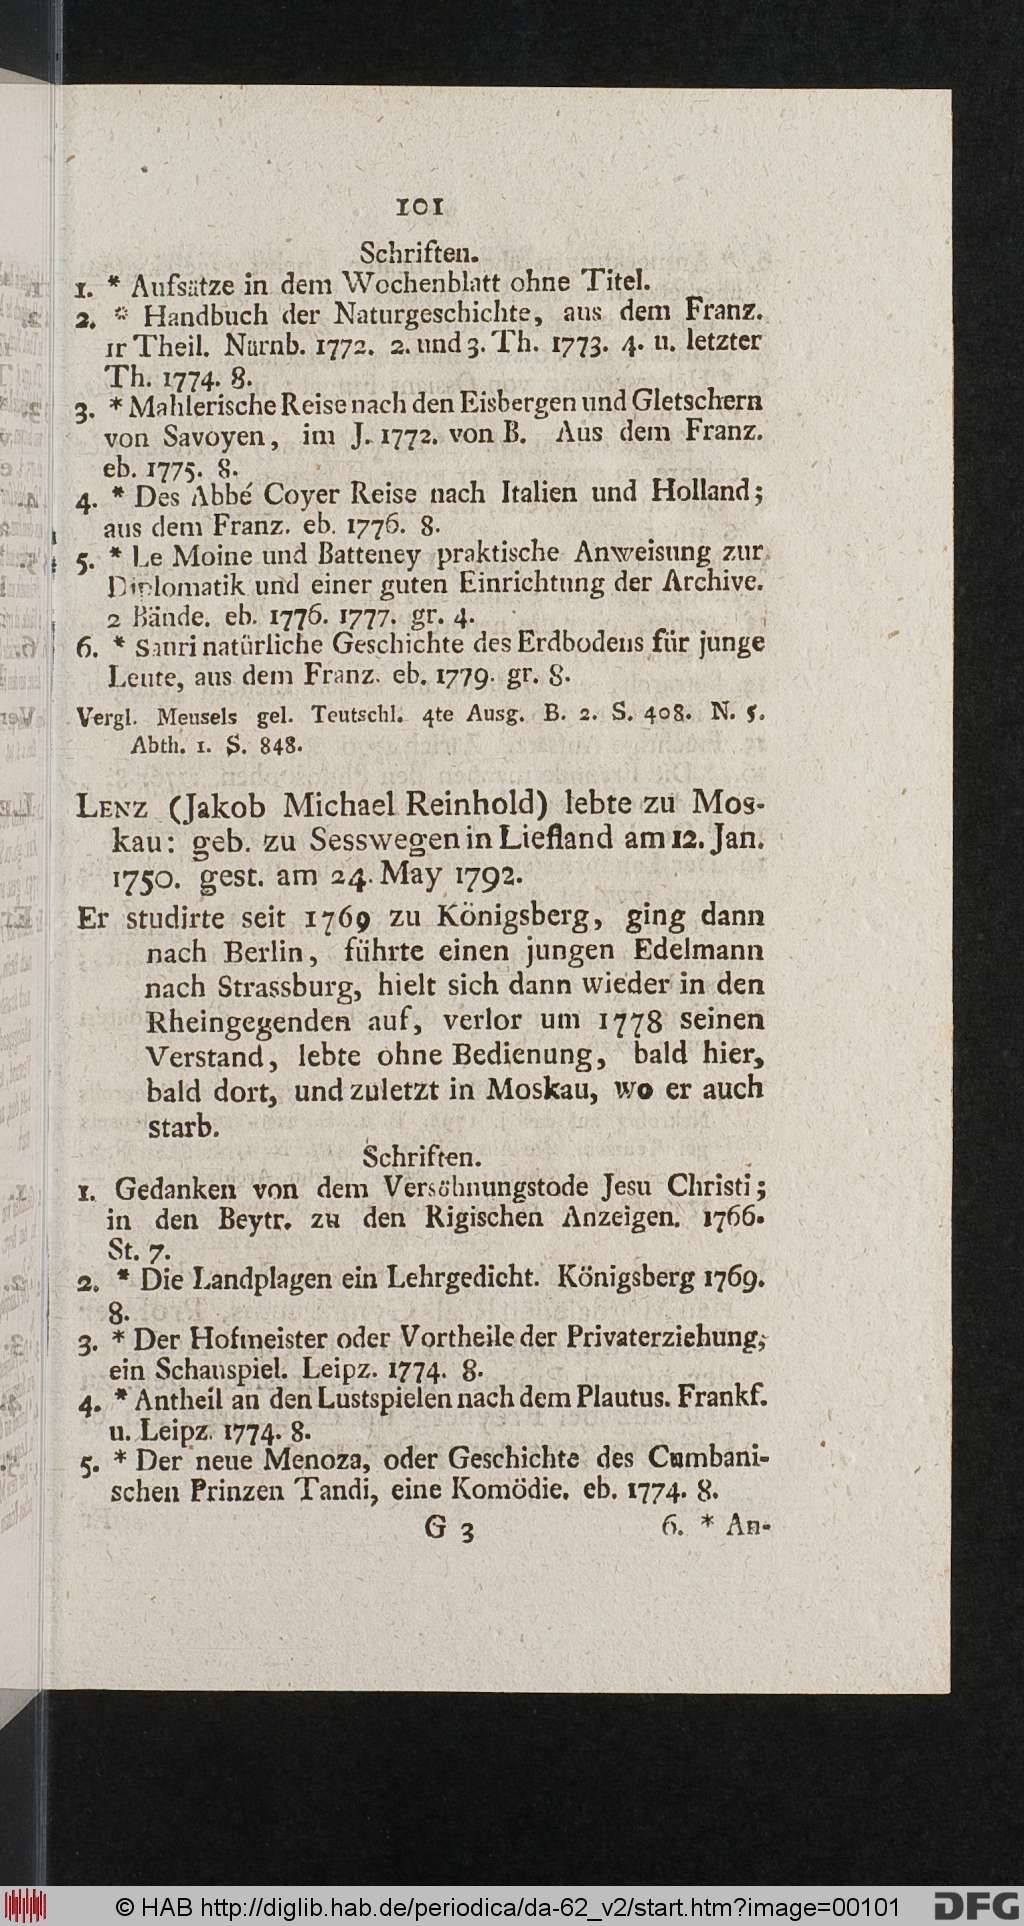 101
Schriften.
1. * Aufsätze in dem Wochenblatt ohne Titel.
2. * Handbuch der Naturgeschichte, aus dem Franz.
1r Theil. Nürnb. 1772. 2. und 3. Th. 1773. 4. u. letzter
Th. 1774. 8.
3. * Mahlerische Reise nach den Eisbergen und Gletschern
von Savoyen, im J. 1772. von B. Aus dem Franz.
eb. 1775. 8.
4. * Des Abbé Coyer Reise nach Italien und Holland;
aus dem Franz. eb. 1776. 8.
5. * Le Moine und Batteney praktische Anweisung zur
Diplomatik und einer guten Einrichtung der Archive.
2 Bände. eb. 1776. 1777. gr. 4.
6. * Sauri natürliche Geschichte des Erdbodens für junge
Leute, aus dem Franz. eb. 1779. gr. 8.
Vergl. Meusels gel. Teutschl. 4te Ausg. B. 2. S. 408. N. 5.
Abth. 1. S. 848.
LENZ (Jakob Michael Reinhold) lebte zu Mos-
kau: geb. zu Sesswegen in Liefland am 12. Jan.
1750. gest. am 24. May 1792.
Er studirte seit 1769 zu Königsberg, ging dann
nach Berlin, führte einen jungen Edelmann
nach Strassburg, hielt sich dann wieder in den
Rheingegenden auf, verlor um 1778 seinen
Verstand, lebte ohne Bedienung, bald hier,
bald dort, und zuletzt in Moskau, wo er auch
starb.
Schriften.
1. Gedanken von dem Versöhnungstode Jesu Christi;
in den Beytr. zu den Rigischen Anzeigen. 1766.
St. 7.
2. * Die Landplagen ein Lehrgedicht. Königsberg 1769.
8.
3. * Der Hofmeister oder Vortheile der Privaterziehung;
ein Schauspiel. Leipz. 1774. 8.
4. * Antheil an den Lustspielen nach dem Plautus. Frankf.
u. Leipz. 1774. 8.
5. * Der neue Menoza, oder Geschichte des Cumbani-
schen Prinzen Tandi, eine Komödie. eb. 1774. 8.
G 3 6. * An-
© HAB http://diglib.hab.de/periodica/da-62_v2/start.htm?image=00101
DFG